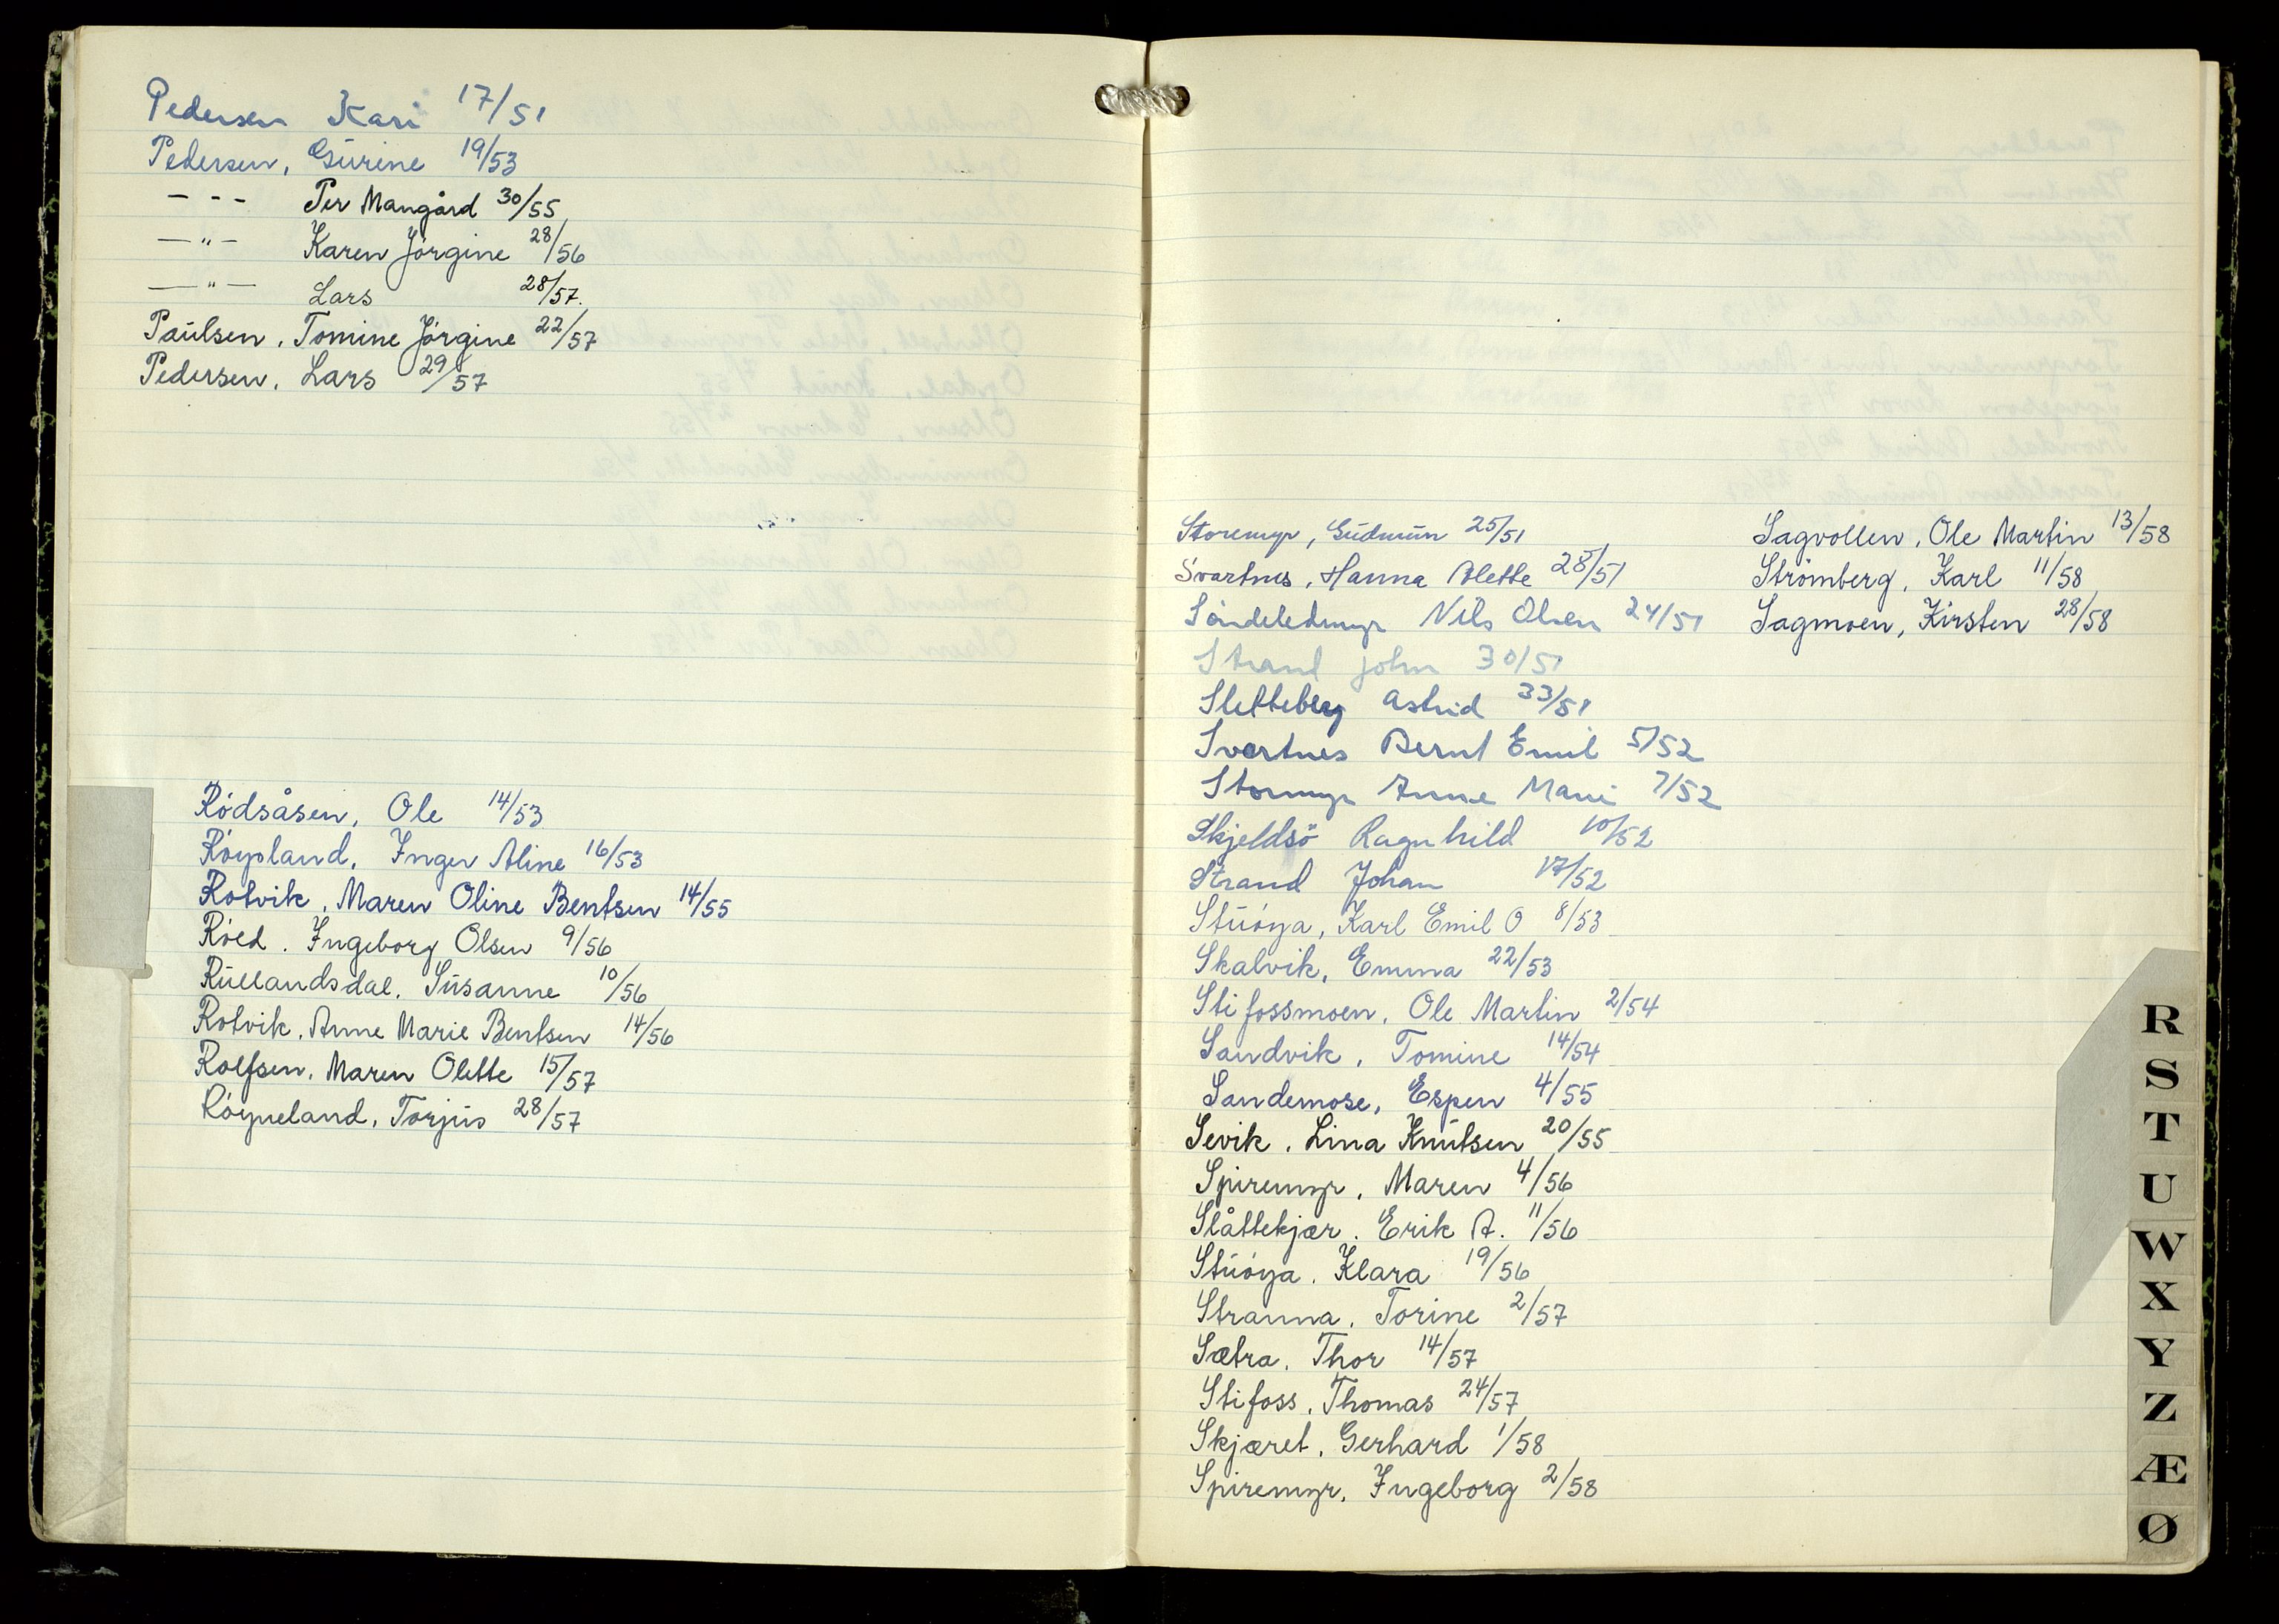 Pedersen Kari 17/51
Pedersen, Gurine 19/53
- - - Per Mangård 30/55
—"— Karen Jörgine 28/56
—"— Lars 28/57.
Paulsen, Tomine Jörgine 22/57
Pedersen, Lars 29/57
Rödsåsen, Ole 14/53
Röysland, Inger Aline 16/53
Rotvik, Maren Oline Bentsen 14/55
Röed. Ingeborg Olsen 9/56
Rullandsdal, Susanne 10/56
Rotvik, Anne Marie Bentsen 14/56
Rolfsen, Maren Olette 15/57
Röyneland, Torjus 28/57
Storemyr, Gudmun 25/51
Svartnes, Hanna Alette 28/51
Söndeledmyr Nils Olsen 24/51
Strand John 30/51
Sletteberg Astrid 33/51
Svartnes Bernt Emil 5/52
Stormyr Anne Marie 7/52
Skjeldsö Ragnhild 10/52
Strand Johan 17/52
Stuöya, Karl Emil O 8/53
Skalvik, Emma 22/53
Stifossmoen, Ole Martin 2/54
Sandvik, Tomine 14/54
Sandemose, Espen 4/55
Sevik, Lina Knutsen 20/55
Spiremyr, Maren 4/56
Slåttekjær. Erik A. 11/56
Stuöya, Klara 19/56
Stranna, Torine 2/57
Sætra, Thor 14/57
Stifoss, Thomas 24/57
Skjæret, Gerhard 1/58
Spiremyr, Ingeborg 2/58
Sagvollen, Ole Martin 13/58
Strömberg, Karl 11/58
Sagmoen, Kirsten 28/58
R
S
T
U
W
X
Y
Z
Æ
Ø